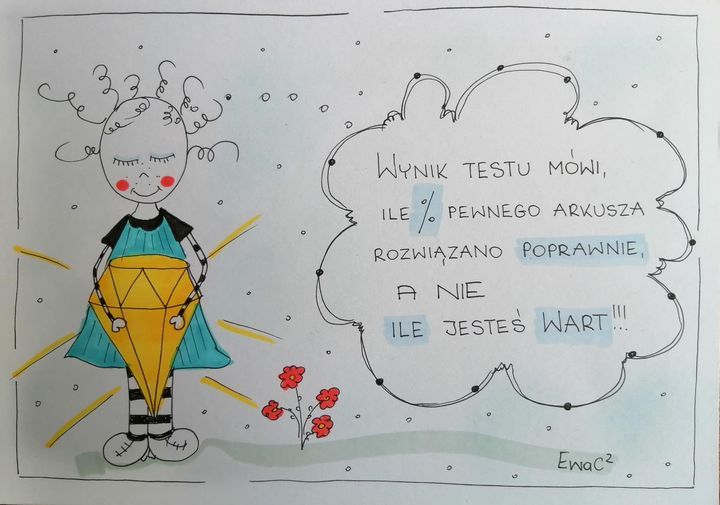 WYNIK TESTU MÓWI,
ILE % PEWNEGO ARKUSZA
ROZWIĄZANO POPRAWNIE,
A NIE
ILE JESTEŚ WART!!!
EwaC²